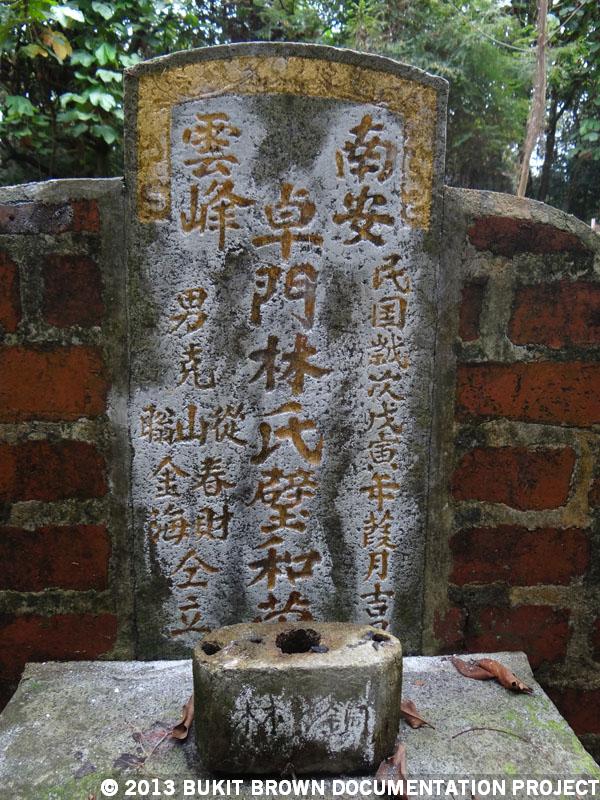 南安
民国歲次戊寅年葭月吉
卓門林氏璧和
雲峰
男克
從財
山春
金海
仝立
林
© 2013 BUKIT BROWN DOCUMENTATION PROJECT